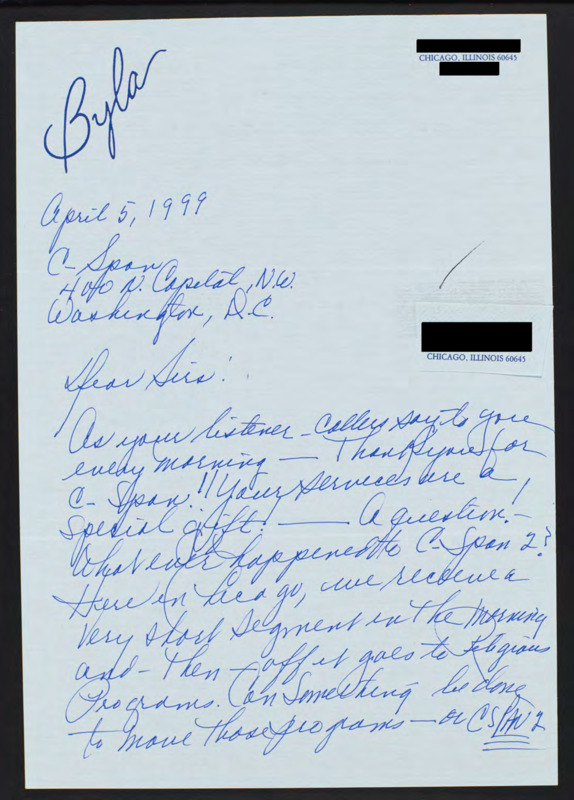 CHICAGO, ILLINOIS 60645
Byla
April 5, 1999
C-Span
400 N. Capital, N.W.
Washington, D.C.
CHICAGO, ILLINOIS 60645
Dear Sirs:
As your listener-callers say to you
every morning — Thank you for
C-Span!! Your services are a
special gift! — A question:-
What ever happened to C-Span 2?
Here in Chicago, we receive a
very short segment in the morning
and - then - off it goes to religious
Programs. Can something be done
to move those programs — or CSPAN 2